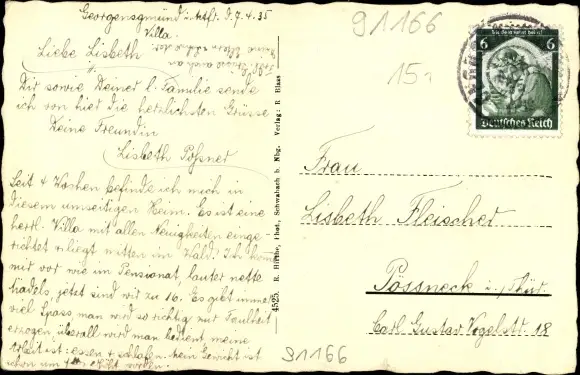 Georgensgmünd i. Mtfr. d. 7. 4. 35
Villa.
Liebe Lisbeth
Dir sowie Deiner l. Familie sende
ich von hier die herzlichsten Grüsse
Deine Freundin
Lisbeth Poßner
Seit 4 Wochen befinde ich mich in
diesem umseitigen Heim. Es ist eine
herrl. Villa mit allen Neuigkeiten einge
richtet u. liegt mitten im Wald. Ich komm
mir vor wie im Pensionat, lauter nette
Mädels, jetzt sind wir zu 16. Es gibt immer
viel Spass, man wird so richtig zur Faulheit
erzogen, überall wird man bedient meine
Arbeit ist: essen u. schlafen. Mein Gewicht ist
schon um
4525. R. Blass, Schwabach b. Nbg. Verlag: R. Blass
91166
15,-
6 6
Deutsches Reich
Frau
Lisbeth Fleischer
Pössneck i./Thür.
Carl Gustav Vogelstr 18
91166